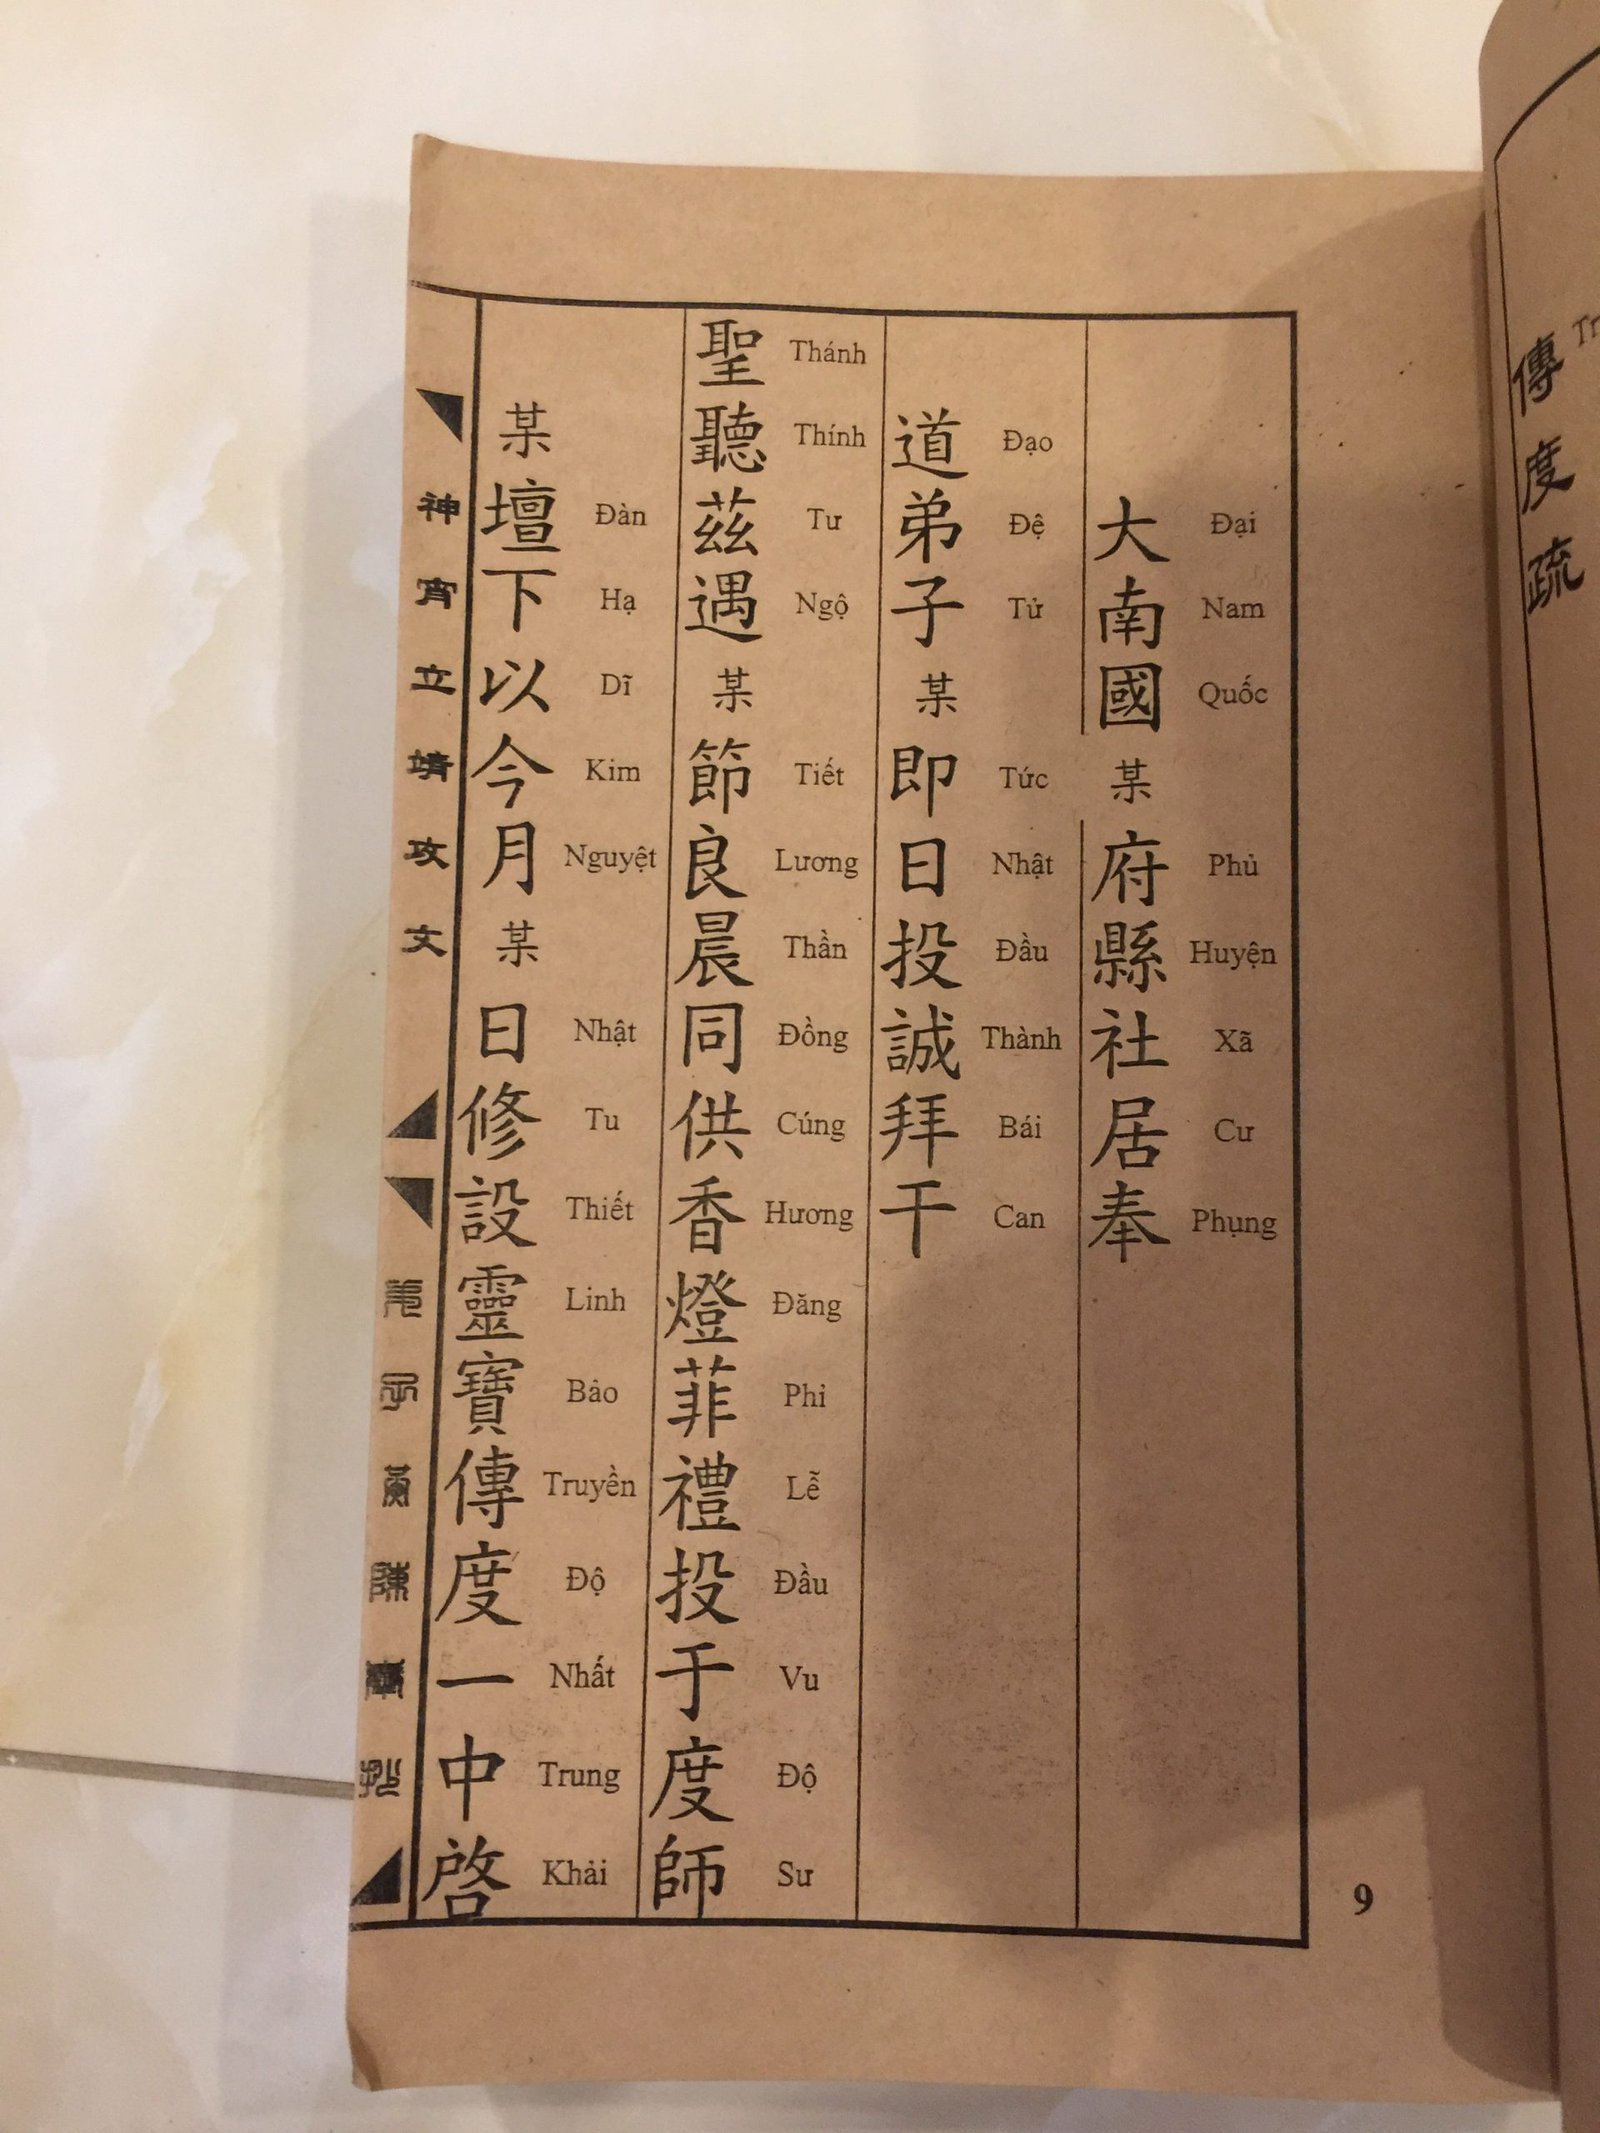 傳度疏
Tr
大南國某府縣社居奉
Đại Nam Quốc Phủ Huyện Xã Cư Phụng
道弟子某即日投誠拜干
Đạo Đệ Tử Tức Nhật Đầu Thành Bái Can
聖聽茲遇某節良晨同供香燈菲禮投于度師
Thánh Thính Tư Ngộ Tiết Lương Thần Đồng Cúng Hương Đăng Phỉ Lễ Đầu Vu Độ Sư
某壇下以今月某日修設靈寶傳度一中啓
Đàn Hạ Dĩ Kim Nguyệt Nhật Tu Thiết Linh Bảo Truyền Độ Nhất Trung Khải
神宵立靖攻文
子黃陳
9